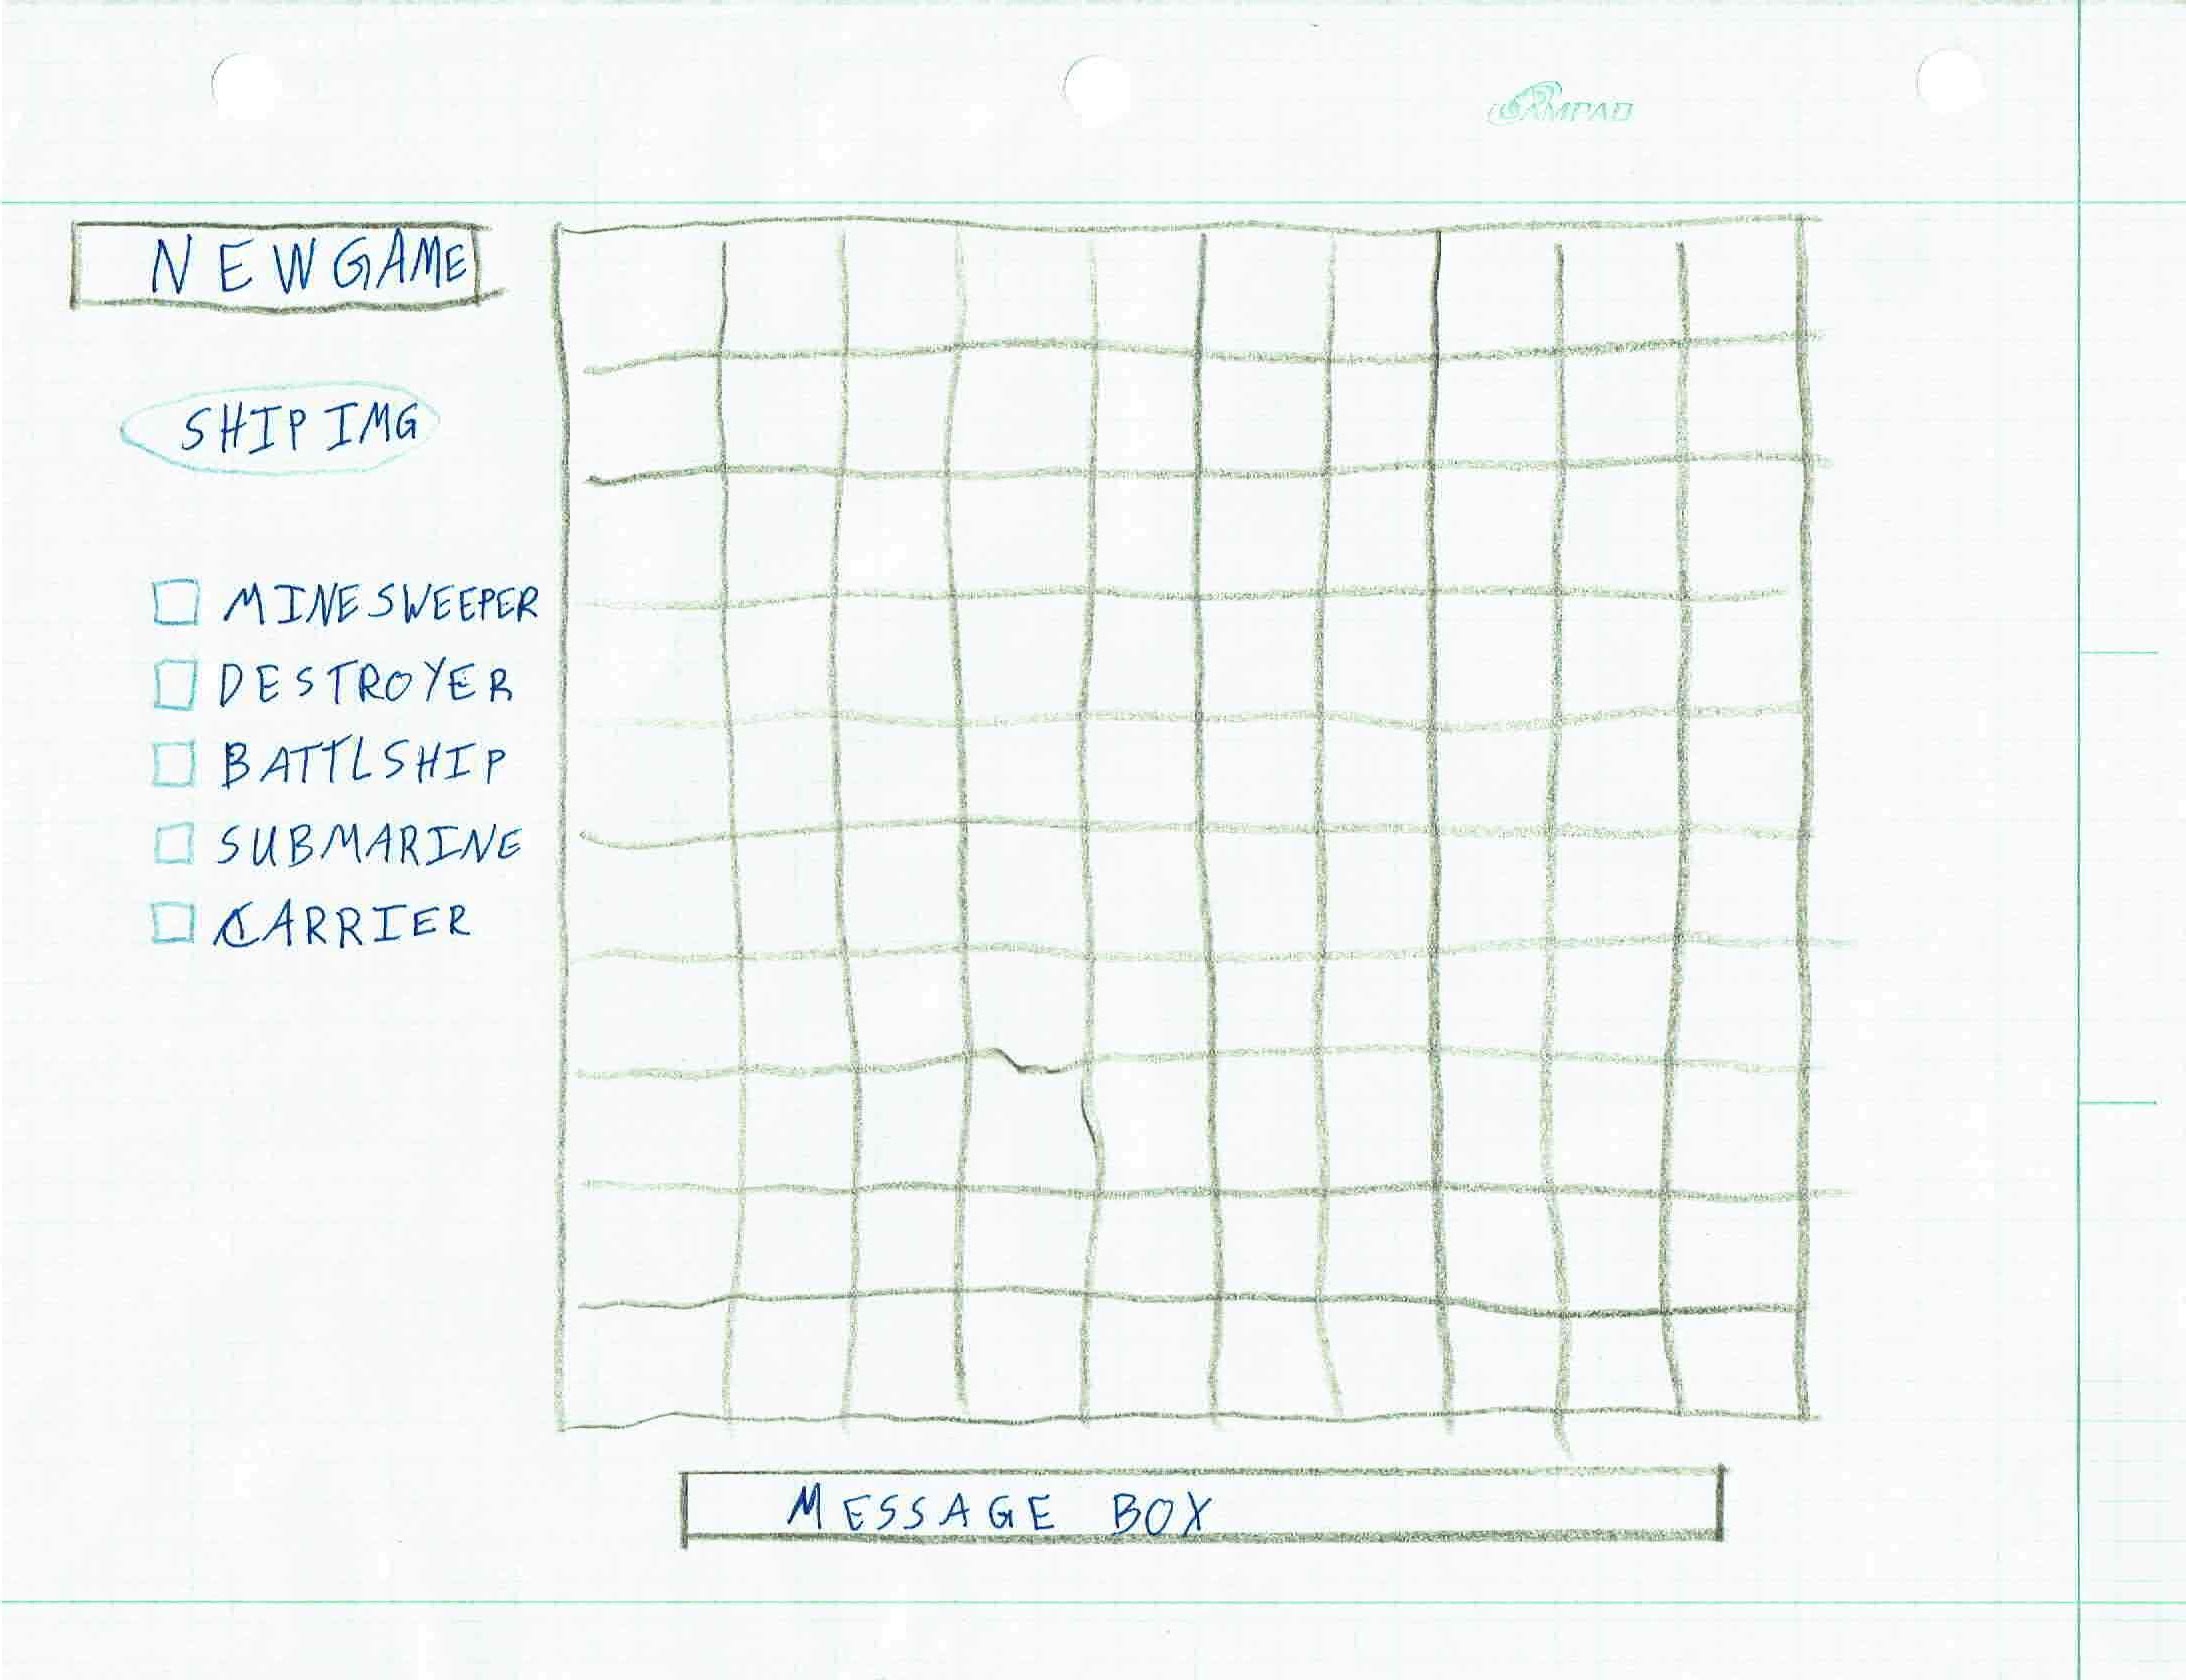 AMPAD
NEW GAME
SHIP IMG
MINESWEEPER
DESTROYER
BATTLSHIP
SUBMARINE
CARRIER
MESSAGE BOX